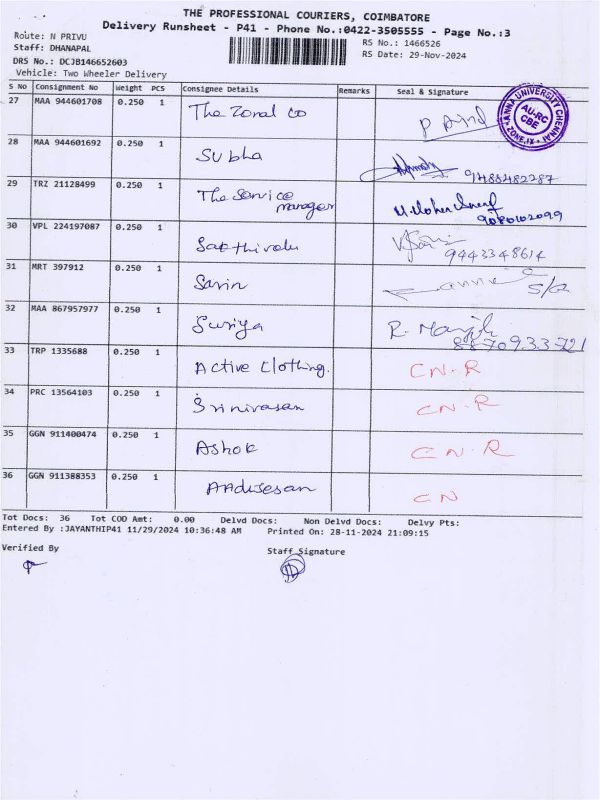 THE PROFESSIONAL COURIERS, COIMBATORE
Delivery Runsheet - P41 - Phone No.:0422-3505555 - Page No.:3
Route: N PRIVU
RS No.: 1466526
Staff: DHANAPAL
RS Date: 29-Nov-2024
DRS No.: DCJB146652603
Vehicle: Two Wheeler Delivery
S No Consignment No Weight PCS Consignee Details Remarks Seal & Signature
27 MAA 944601708 0.250 1 The Zonal co
ANNA UNIVERSITY CHENNAI
AU-RC
CBE
ZONE.IX
28 MAA 944601692 0.250 1 Subha 9488482287
29 TRZ 21128499 0.250 1 The Service
manager
9080102099
30 VPL 224197087 0.250 1 Sakthivelu
9443348614
31 MRT 397912 0.250 1 Savin S/a
32 MAA 867957977 0.250 1 Suriya R.
8870933721
33 TRP 1335688 0.250 1 Active Clothing. CN.R
34 PRC 13564103 0.250 1 Srinivasan CN.R
35 GGN 911400474 0.250 1 Ashok CN.R
36 GGN 911388353 0.250 1 AAdisesan CN
Tot Docs: 36 Tot COD Amt: 0.00 Delvd Docs: Non Delvd Docs: Delvy Pts:
Entered By :JAYANTHIP41 11/29/2024 10:36:48 AM Printed On: 28-11-2024 21:09:15
Verified By Staff Signature